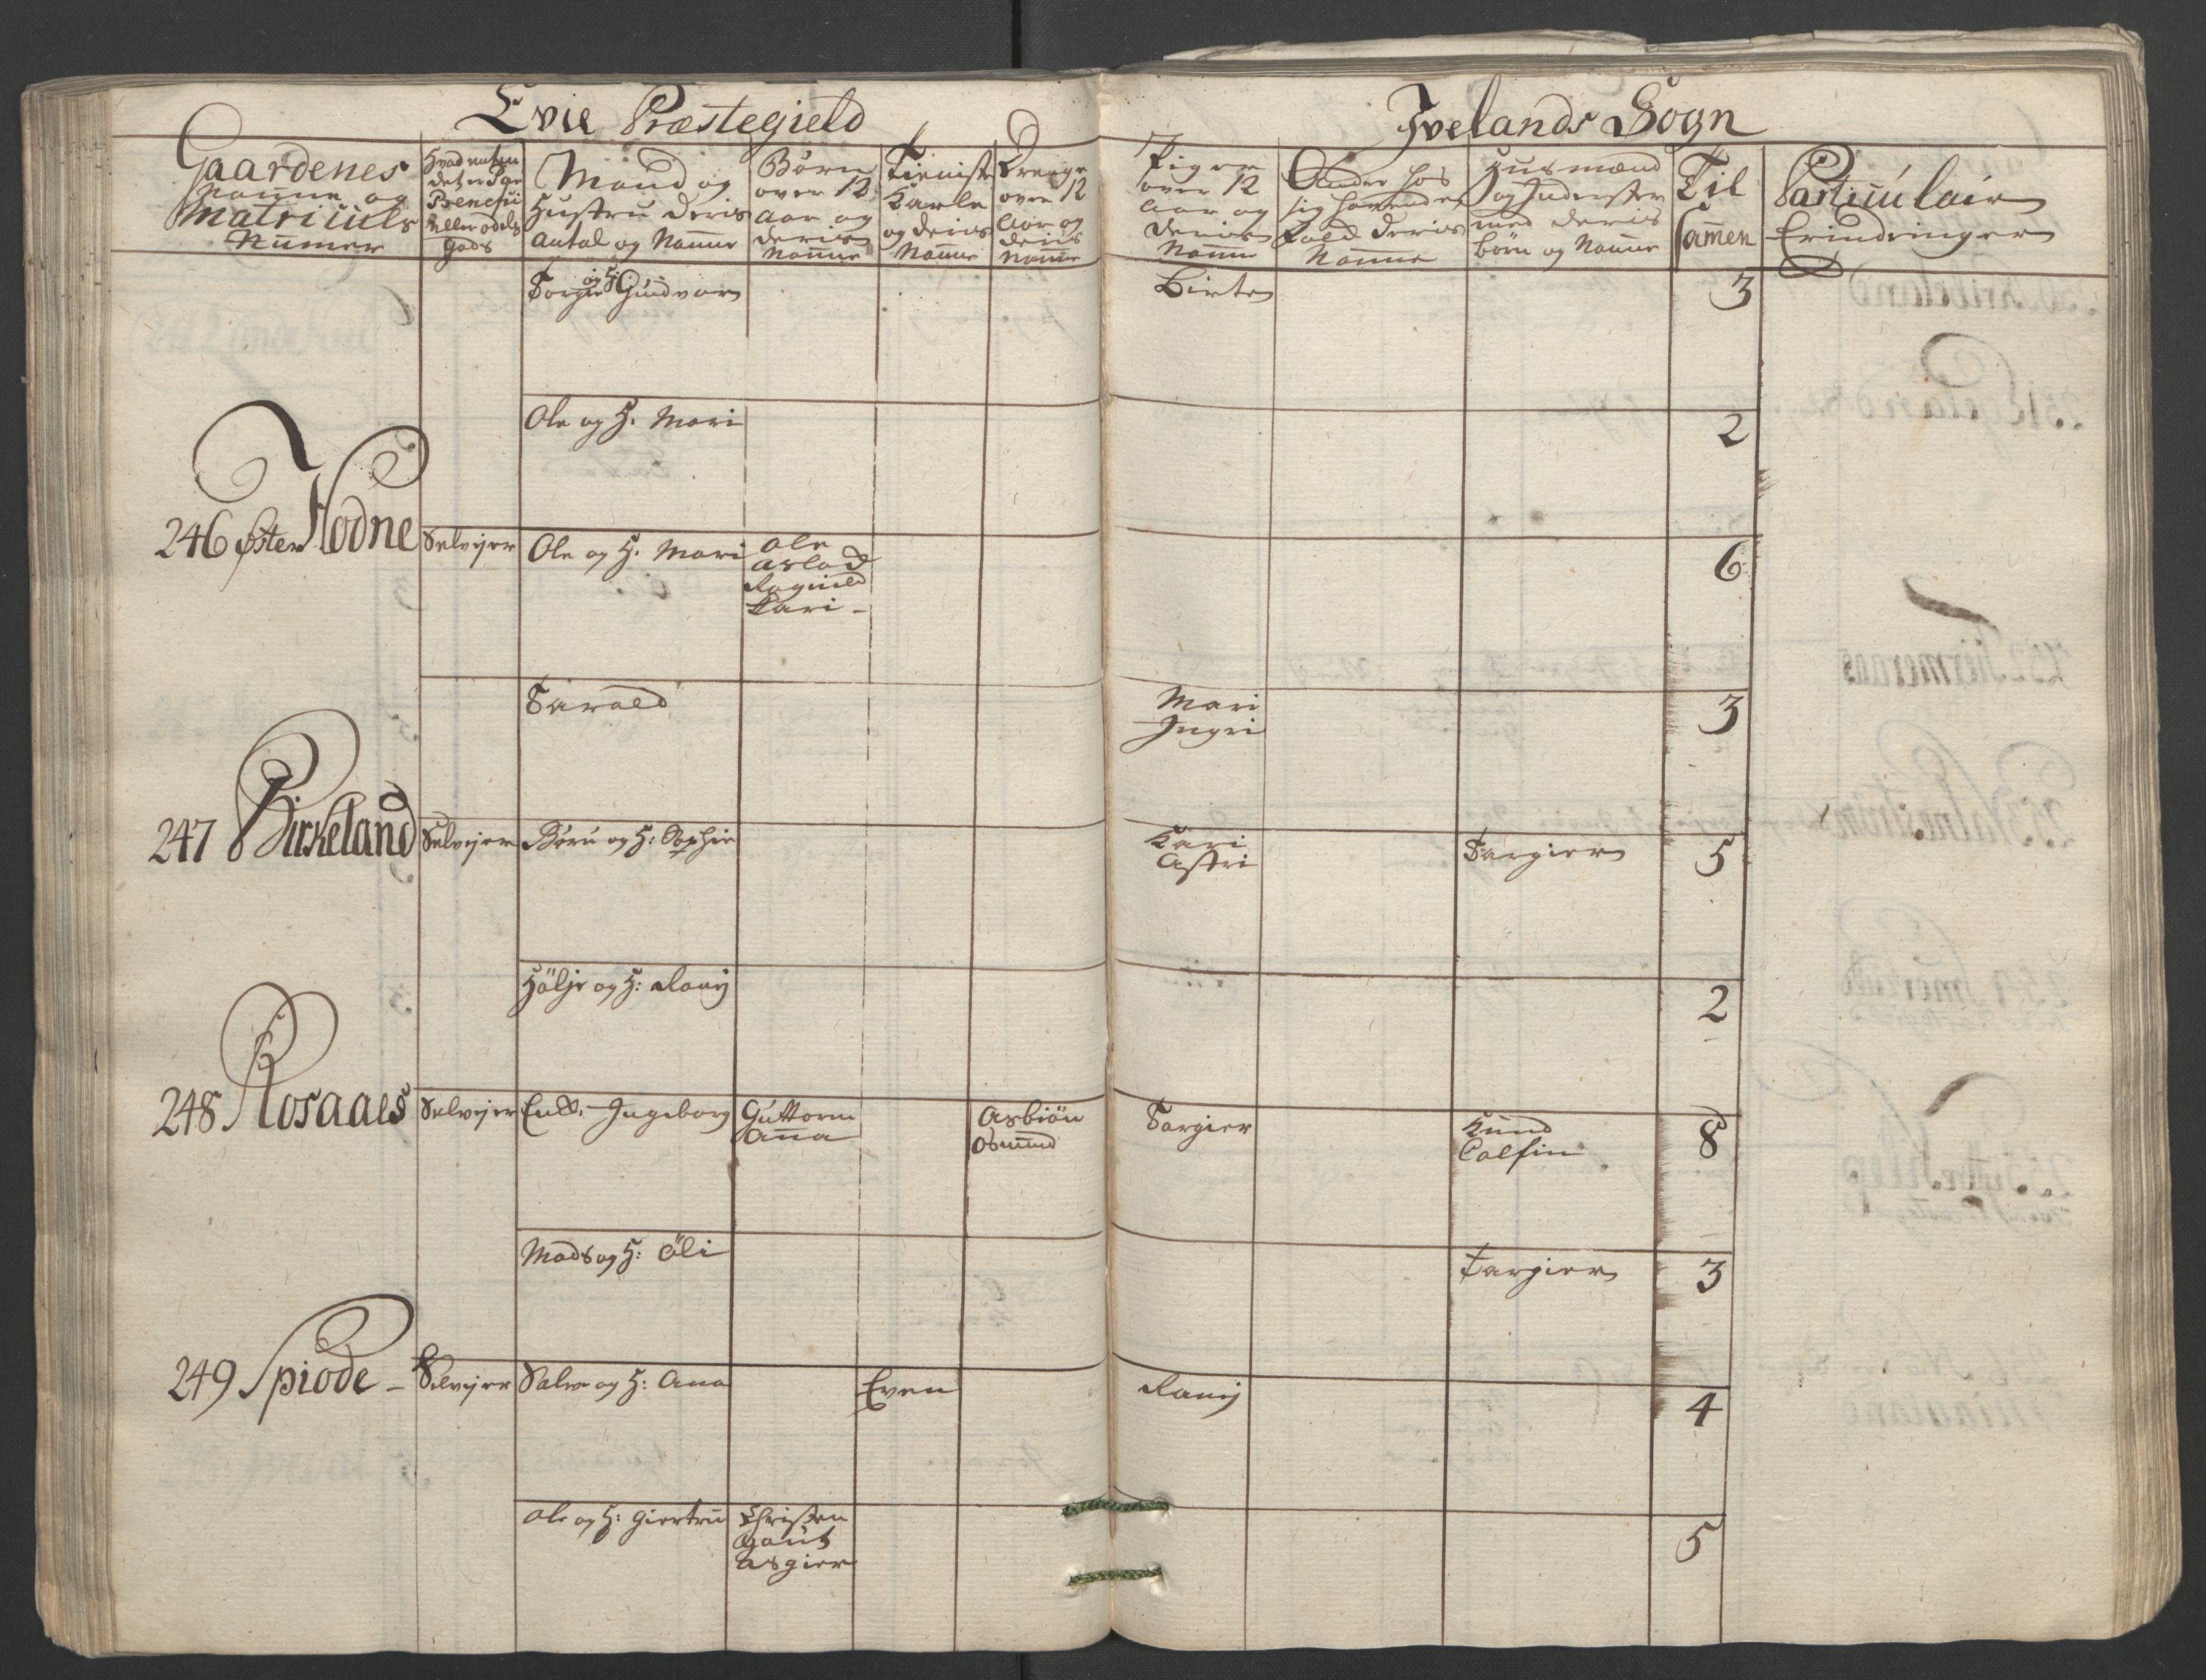 Evie Præstegield
Ivelands Sogn
Gaardenes
Nafne og
Matriculs
Numer
Hvad enten
det er
Benefici
Eller odels
Gods
Mand og
Hustru deris
Antal og Nafne
Børn
over 12
Aar og
deris
Nafne
Tieniste
Karle
og deris
Nafne
Drenge
over 12
Aar og
deris
Nafne
Piger
over 12
Aar og
deris
Nafne
Andre hos
sig havende
Fold deris
Nafne
Husmænd
og Inderster
med deris
børn og Nafne
Til
samen
Particulair
Erindringer
Torgier og H: Gundvor
Birte
3
Ole og H. Mari
2
246 Øster Hodne
Selvejer
Ole og H. Mari
Ole
Aslod
Ragnild
Kari -
6
Tarald
Mari
Ingri
3
247 Birkeland
Selvejer
Børu og H: Sophie
Kari
Astri
Targier
5
Hölje og H: Ranj
2
248 Rosaaes
Selvejer
Ingeborg
Guttorm
Anna
Asbiön
Osmund
Targier
Knud
Calfin
8
Mads og H: Öli
Targier
3
249 Spiode -
Selvejer
Salve og H: Ana
Even
Ranj
4
Ole og H: Giertru
Christen
Gaut
Asgier
5